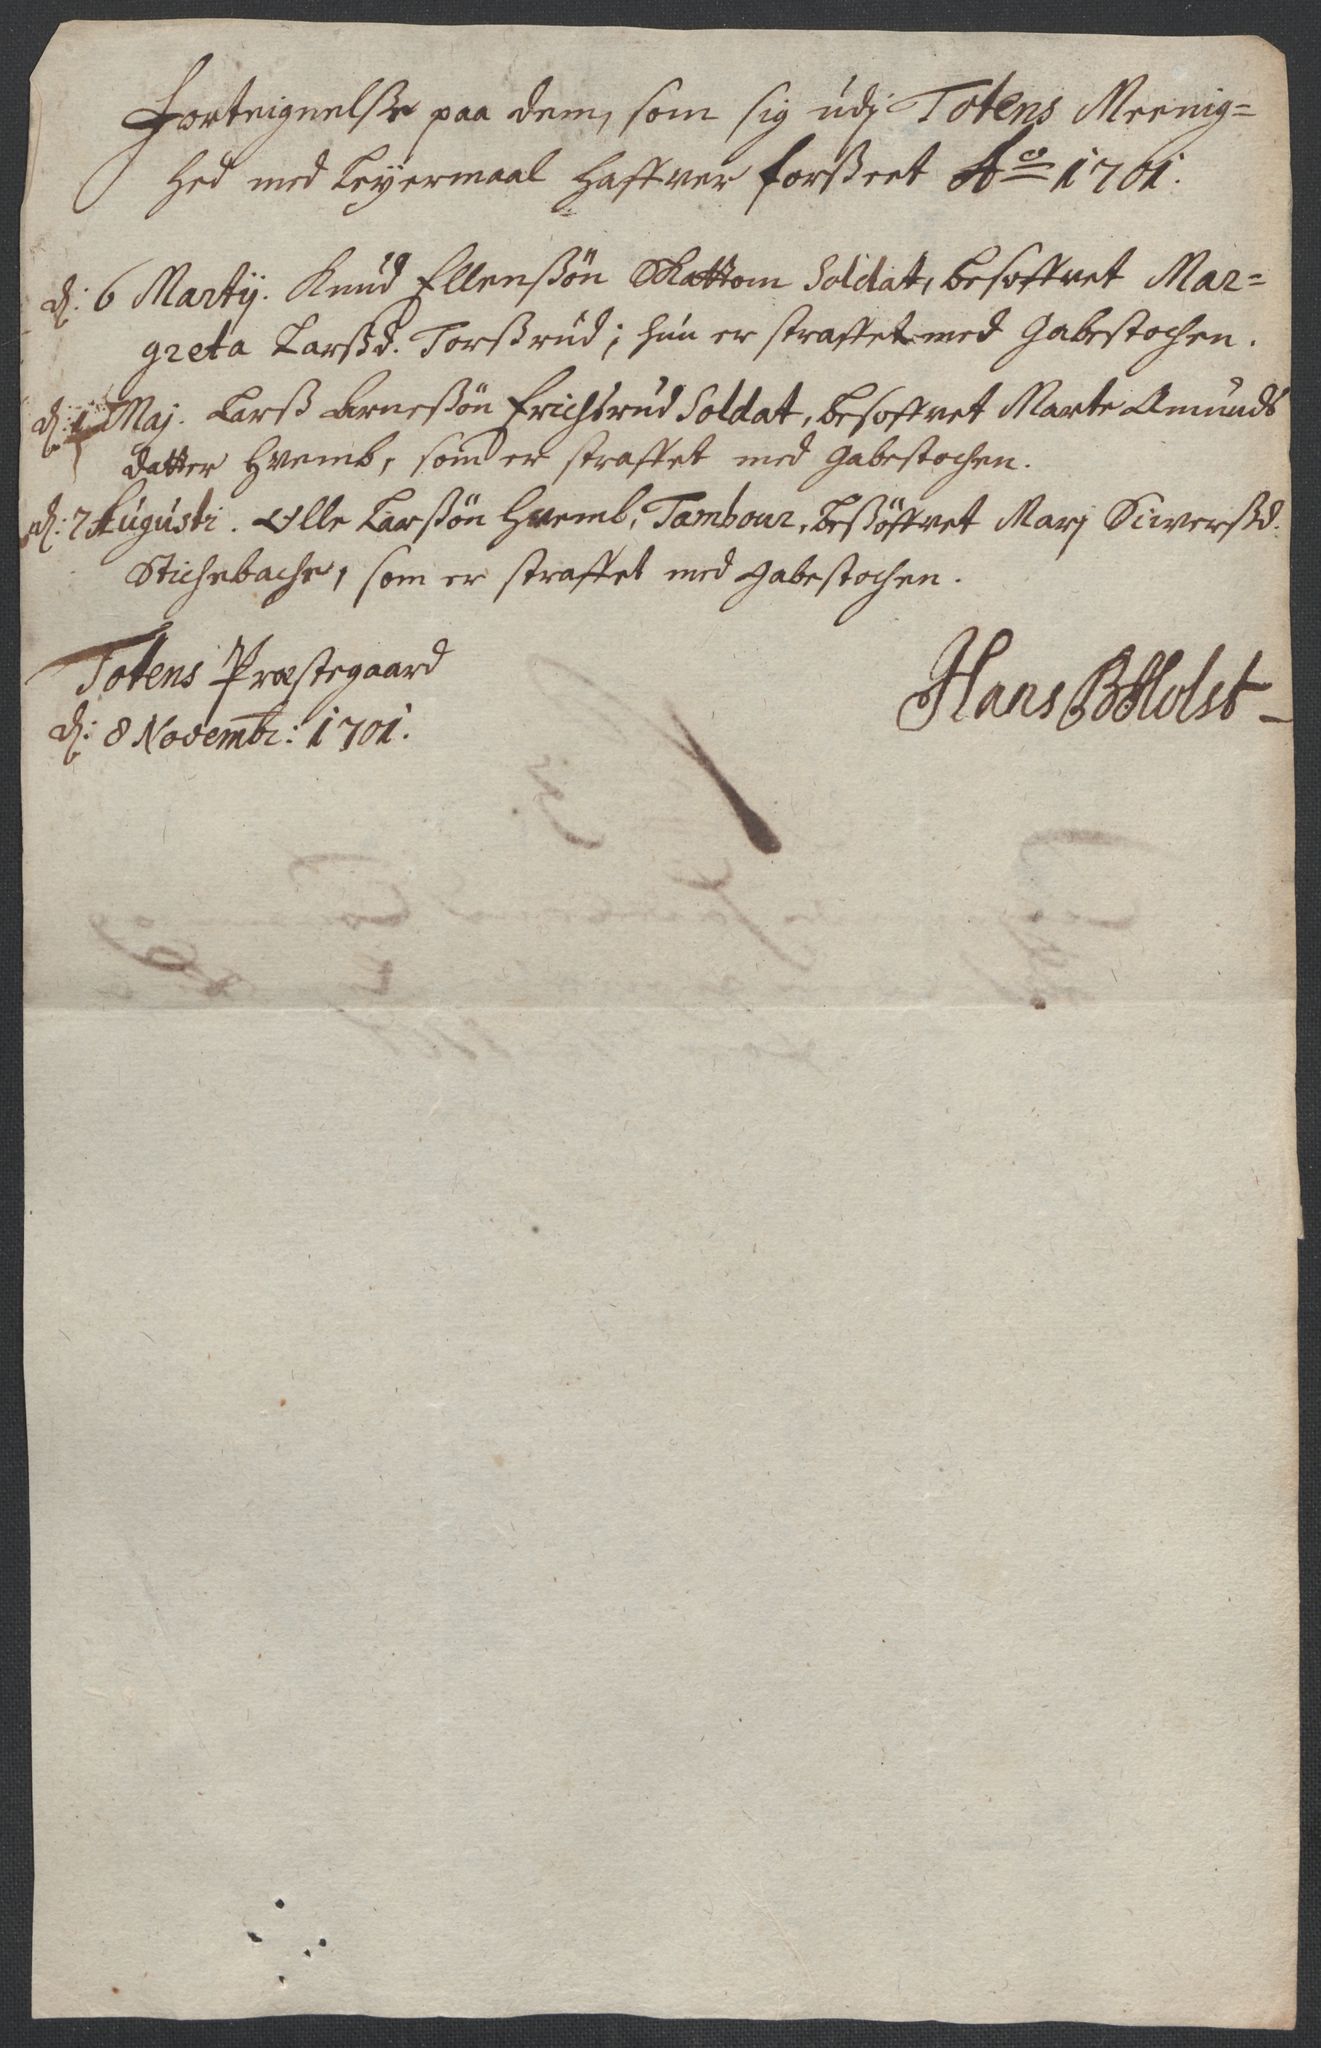 Forteignelse paa dem, som sig udj Totens Meenig=
hed med Leyermaal haffver forsseet Ao 1701.
d: 6 Martij. Knud Ellenssøn Skattom Soldat, besoffvet Mar=
greta Larssd. Torssrud; hun er straffet med Gabestochen.
d: 1 Maj. Larss Arnessøn Erichsrud Soldat, besoffvet Marte Amunds
datter Hvemb, som er straffet med Gabestochen.
d: 7 Augusti. Olle Larssøn Hvemb, Tambour, bessøffvet Marj Siverssd.
Stichebache, som er straffet med Gabestochen.
Totens Præstegaard
d: 8 Novembr: 1701.
Hans B Holst